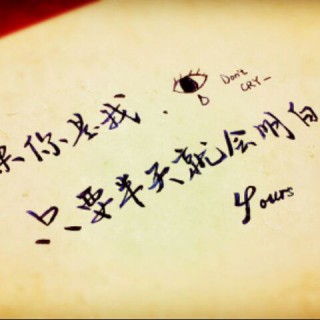 果你是我.
Don't
CRY~
只要半天就会明白
Yours